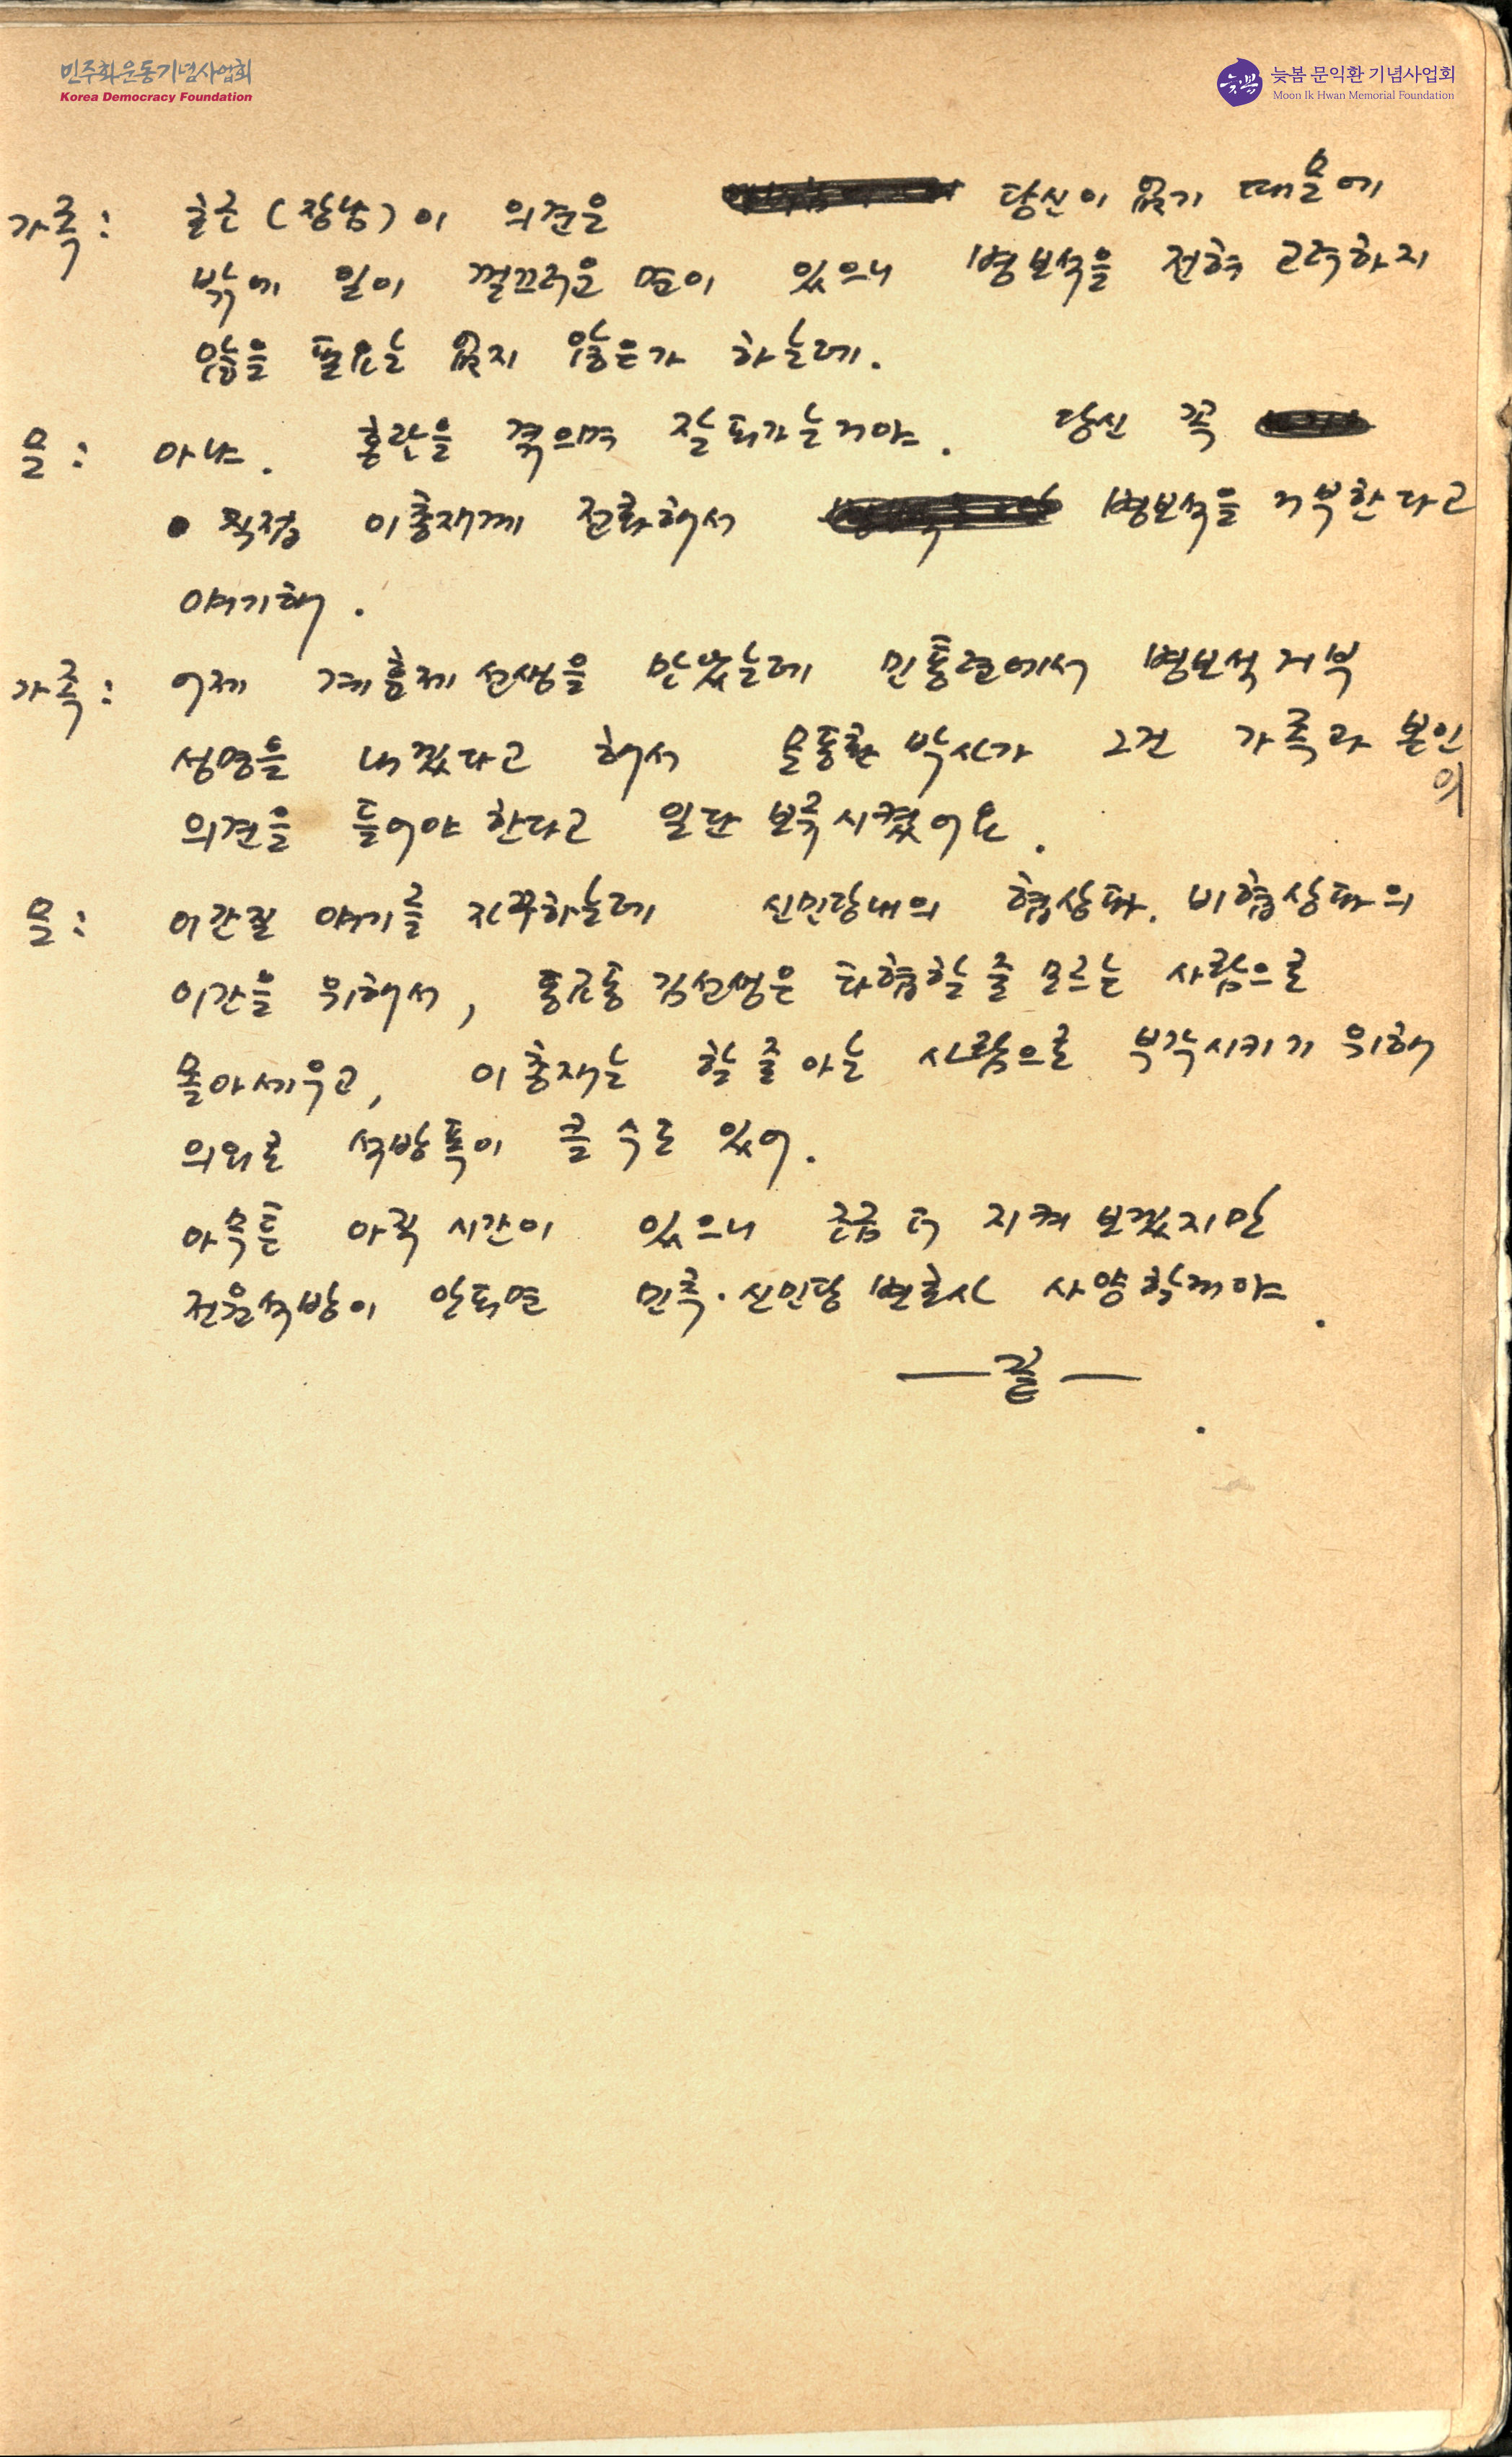 민주화운동기념사업회
Korea Democracy Foundation
늦봄
늦봄 문익환 기념사업회
Moon Ik Hwan Memorial Foundation
가족: 호근(장남)이 의견은 당신이 없기 때문에
밖에 일이 껄끄러운 면이 있으니 병보석을 전혀 고려하지
않을 필요는 없지 않은가 하는데.
문: 아냐. 혼란을 겪으며 잘 돼가는거야. 당신 꼭
직접 이총재께 전화해서 병보석을 거부한다고
얘기해.
가족: 어제 계훈제 선생을 만났는데 민통련에서 병보석거부
성명을 내겠다고 해서 문동환 박사가 그건 가족과 본인
의
의견을 들어야 한다고 일단 보류시켰어요.
문: 이간질 얘기를 자꾸하는데 신민당내의 협상파. 비협상파의
이간을 위해서, 동교동 김선생은 타협할 줄 모르는 사람으로
몰아세우고, 이총재는 할 줄 아는 사람으로 부각시키기 위해
의외로 석방폭이 클 수도 있어.
아뭏튼 아직 시간이 있으니 조금 더 지켜 보겠지만
전원석방이 안되면 민추·신민당 변호사 사양할꺼야.
— 끝 —